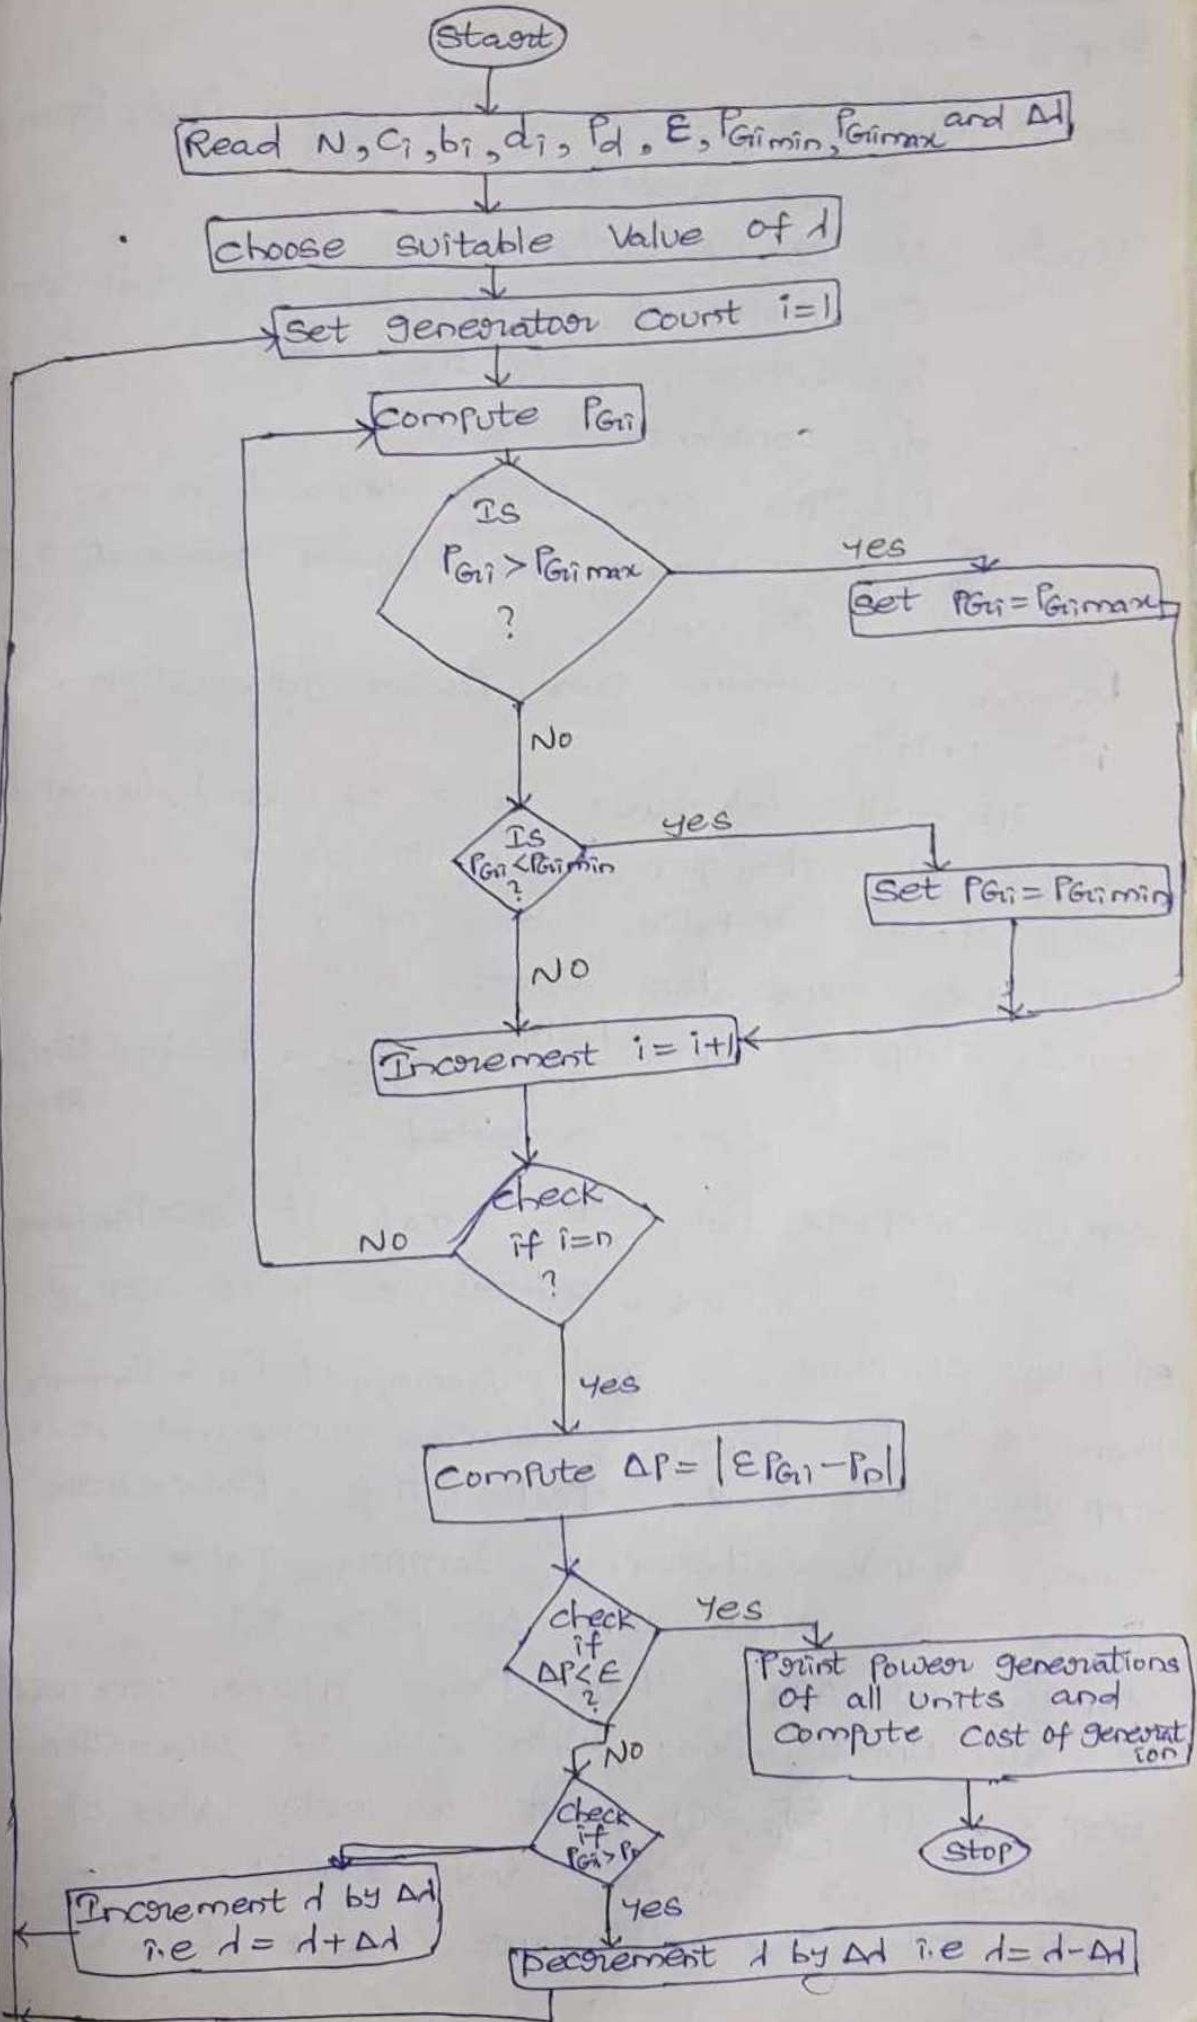 Start
Read N, Ci, bi, di, Pd, ε, PGimin, PGimax and Δλ
choose suitable Value of λ
Set generator Count i=1
Compute PGi
Is
PGi > PGimax
?
yes
Set PGi = PGimax
NO
Is
PGi < PGimin
?
yes
Set PGi = PGimin
NO
Increment i = i+1
Check
if i=n
?
NO
yes
Compute ΔP = |ΣPGi - PD|
Check
if
ΔP < ε
?
Yes
Print Power generations
of all units and
Compute Cost of generat
ion
Stop
NO
Check
if
PGi > PD
Increment λ by Δλ
i.e λ = λ + Δλ
yes
Decrement λ by Δλ i.e λ = λ - Δλ